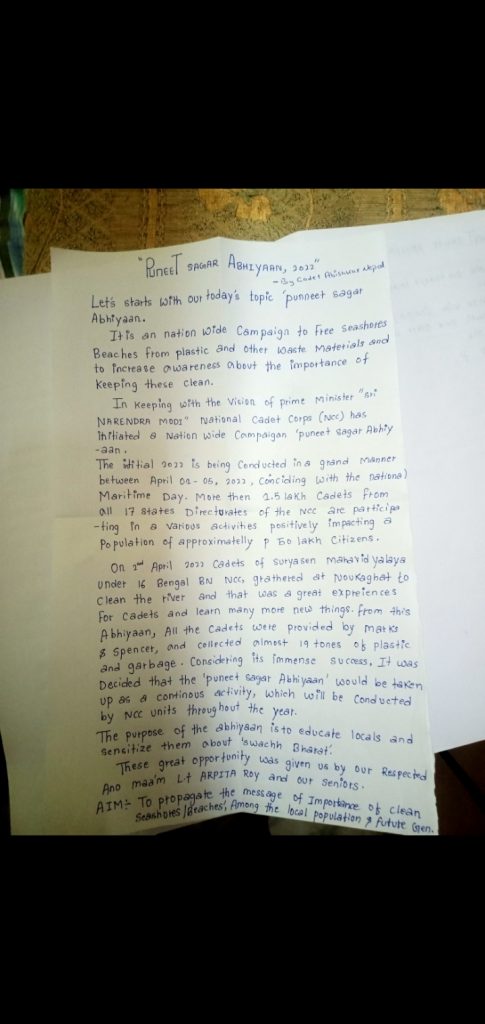 "PUNEET SAGAR ABHIYAAN, 2022"
- By Cadet Abishkar Nepal
Let's starts with our today's topic 'punneet sagar
Abhiyaan.
It is an nation wide Campaign to free seashores
Beaches from plastic and other waste Materials and
to increase awareness about the importance of
Keeping these clean.
In Keeping with the vision of prime Minister "Sri
NARENDRA MODI" National Cadet Corps (Ncc) has
initiated a Nation wide Campaigan 'puneet sagar Abhiy
-aan.
The iditial 2022 is being Conducted in a grand manner
between April 02-05, 2022, Conciding with the national
Maritime Day. More then 1.5 lakh Cadets from
all 17 states Directorates of the NCC are participa
-ting in a various activities positively impacting a
Population of approximatelly P 50 lakh Citizens.
On 2nd April 2022 Cadets of Suryasen mahavidyalaya
under 16 Bengal BN NCC, grathered at Noukaghat to
Clean the river and that was a great expreiences
For Cadets and learn many more new things. from this
Abhiyaan, All the Cadets were provided by marks
& Spencer, and collected almost 19 tones of plastic
and garbage. Considering its immense success, It was
Decided that the 'puneet sagar Abhiyaan' would be taken
up as a continous activity, which will be Conducted
by NCC units throughout the year.
The purpose of the abhiyaan is to educate locals and
sensitize them about 'swachh Bharat'.
These great opportunity was given us by our Respected
Ano maa'm Lt ARPITA ROY and our seniors.
AIM:- To propagate the message of Importance of clean
Seashores/Beaches, Among the local population & Future Gen.